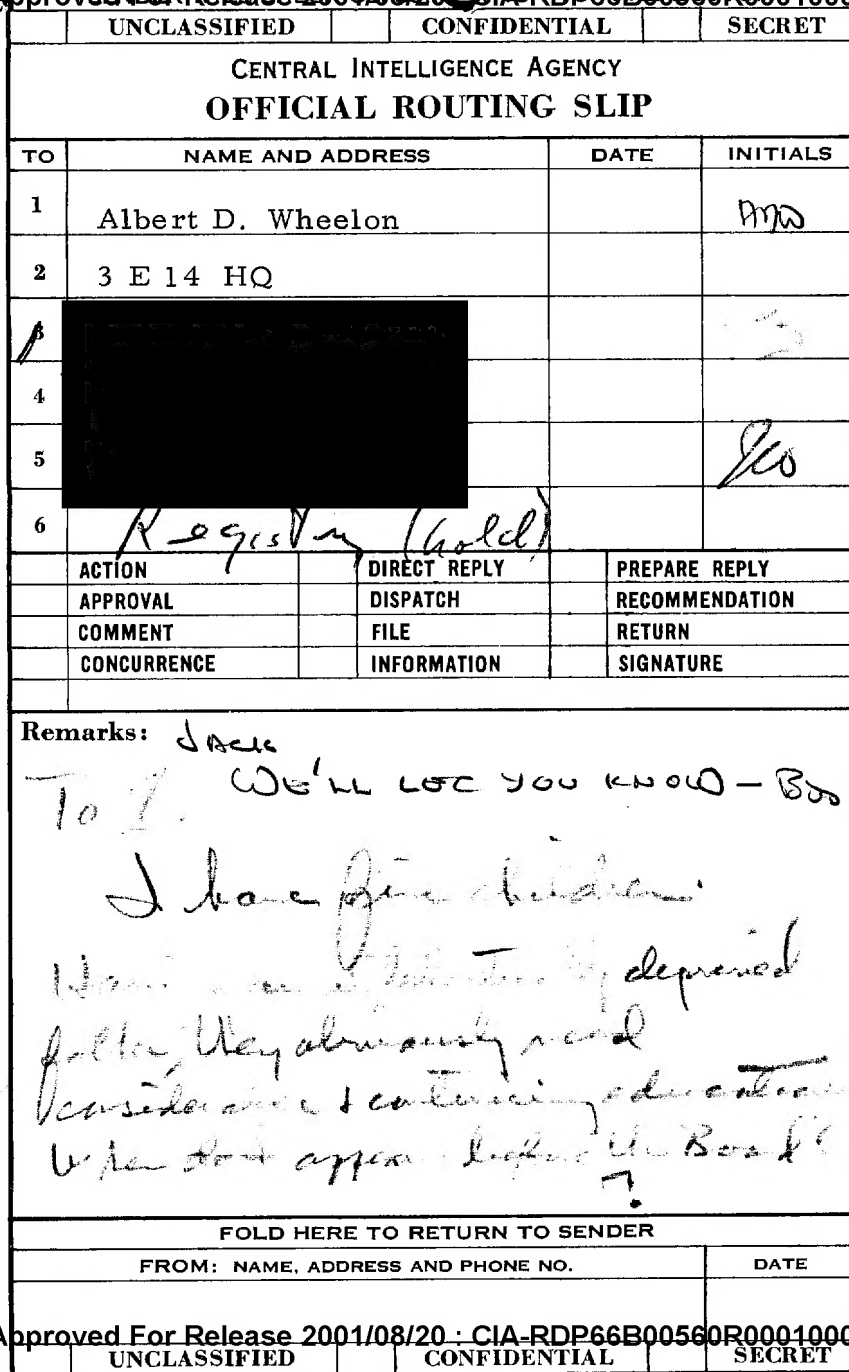 UNCLASSIFIED CONFIDENTIAL SECRET
CENTRAL INTELLIGENCE AGENCY
OFFICIAL ROUTING SLIP
TO NAME AND ADDRESS DATE INITIALS
1 Albert D. Wheelon
2 3 E 14 HQ
3
4
5
6 Registry (hold)
ACTION DIRECT REPLY PREPARE REPLY
APPROVAL DISPATCH RECOMMENDATION
COMMENT FILE RETURN
CONCURRENCE INFORMATION SIGNATURE
Remarks: JACK
WE'LL LET YOU KNOW - BUD
To 1.
I have five children.
deprived
they obviously need
continuing education
When do I appear before the Board
?
FOLD HERE TO RETURN TO SENDER
FROM: NAME, ADDRESS AND PHONE NO. DATE
Approved For Release 2001/08/20 : CIA-RDP66B00560R0001000
UNCLASSIFIED CONFIDENTIAL SECRET